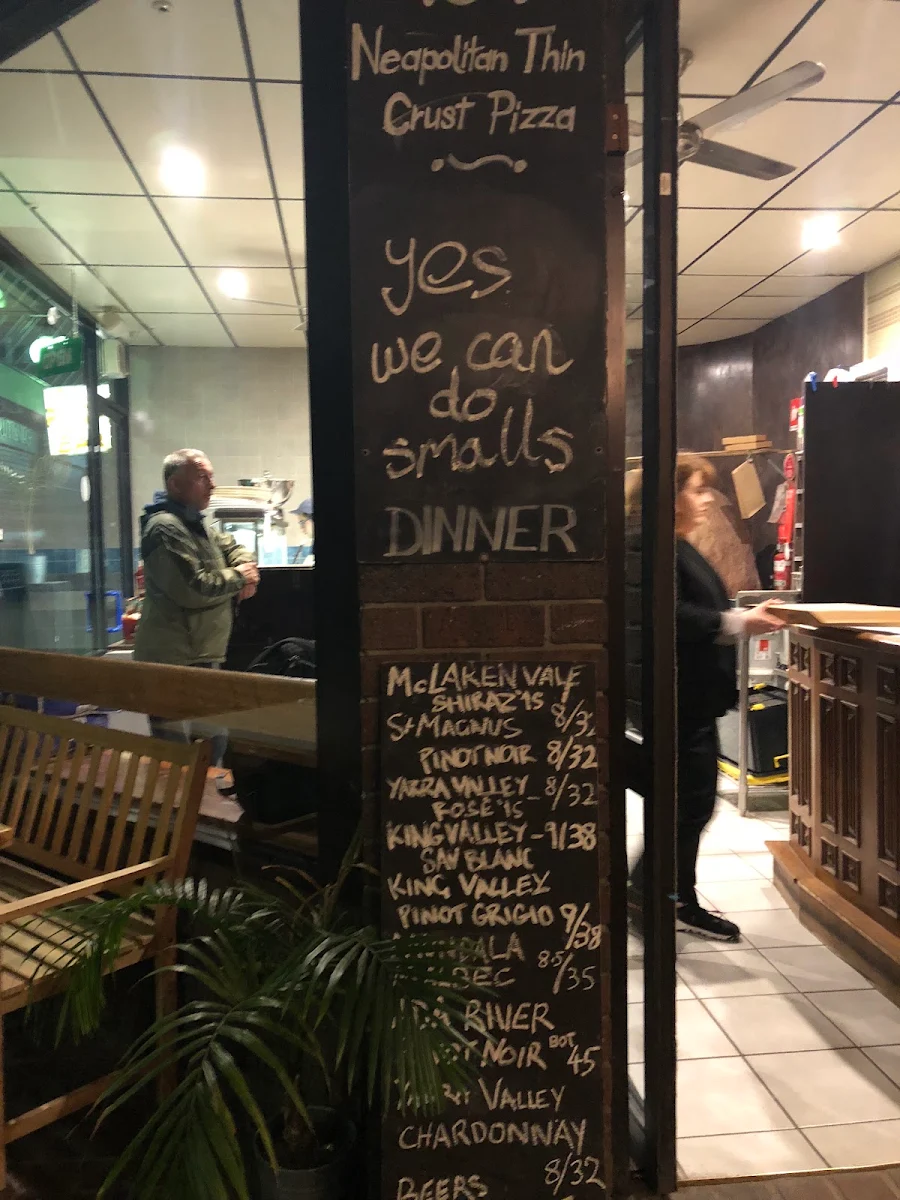 Neapolitan Thin
Crust Pizza
yes
we can
do
smalls
DINNER
McLAREN VALE
SHIRAZ '15 8/32
St MAGNUS
PINOT NOIR 8/32
YARRA VALLEY
ROSE '15 - 8/32
KING VALLEY - 9/38
SAV BLANC
KING VALLEY
PINOT GRIGIO 9/38
8.5/35
RIVER
NOIR BOT 45
VALLEY
CHARDONNAY
8/32
BEERS